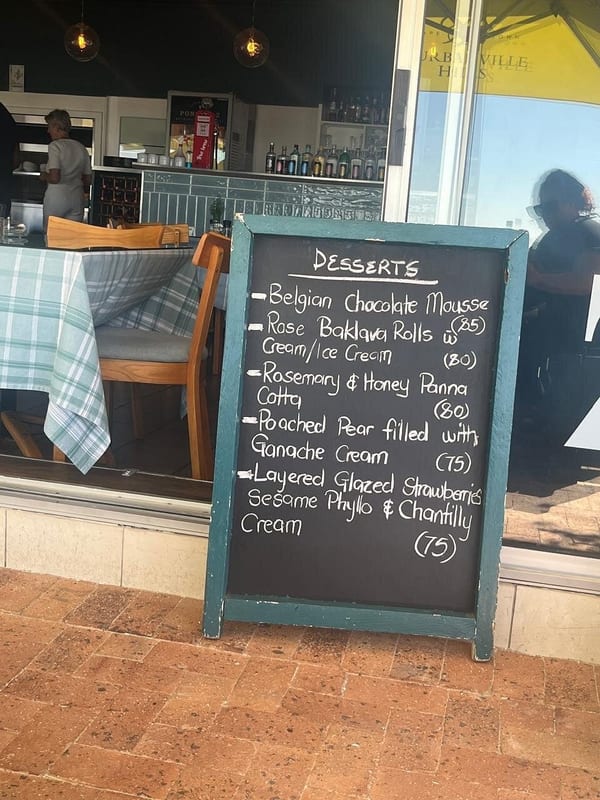 DURBANVILLE
HILLS
DESSERTS
- Belgian Chocolate Mousse
(85)
- Rose Baklava Rolls w
Cream/Ice Cream (80)
- Rosemary & Honey Panna
Cotta (80)
- Poached Pear filled with
Ganache Cream (75)
- Layered Glazed Strawberries
Sesame Phyllo & Chantilly
Cream
(75)